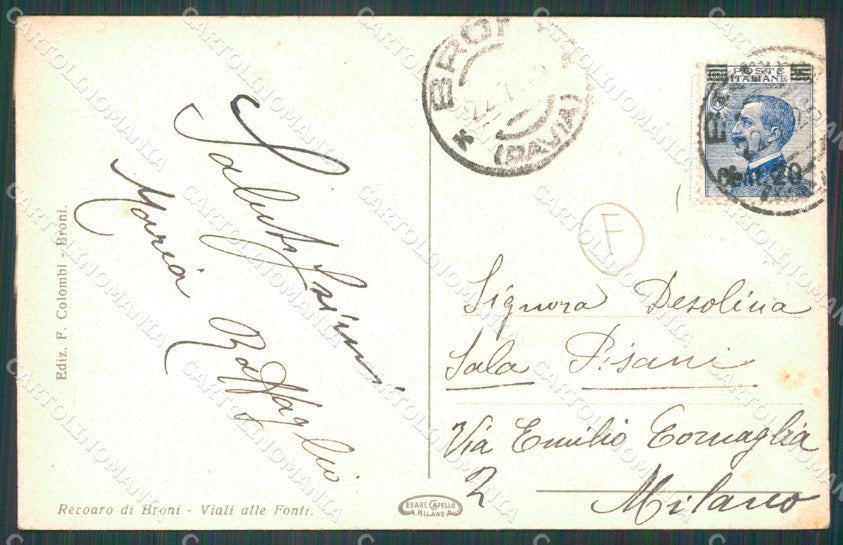 Saluti
Maria
Ediz. F. Colombi - Broni.
Recoaro di Broni - Viali alle Fonti.
CESARE CAPELLO
MILANO
BRONI
(PAVIA)
POSTE
ITALIANE
Cent. 20
F
Signora Desolina
Sala Pisani
Via Emilio Cornaglia
2
Milano
CARTOLINOMANIA